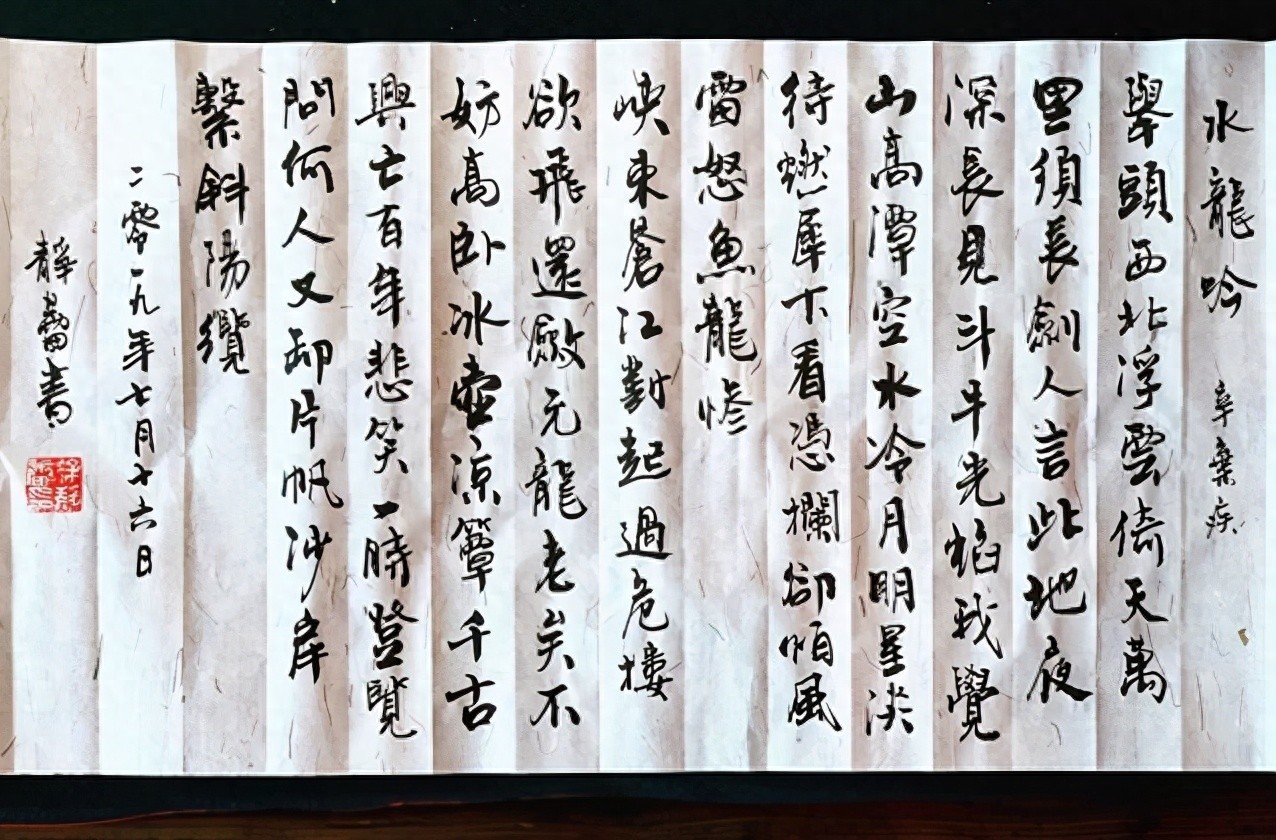 水龍吟 辛棄疾
舉頭西北浮雲倚天萬
里須長劍人言此地夜
深長見斗牛光焰我覺
山高潭空水冷月明星淡
待燃犀下看憑欄卻怕風
雷怒魚龍慘
峽束蒼江對起過危樓
欲飛還斂元龍老矣不
妨高卧冰壺涼簟千古
興亡百年悲笑一時登覽
問何人又卸片帆沙岸
繫斜陽纜
二零一九年七月十六日
靜蕃書